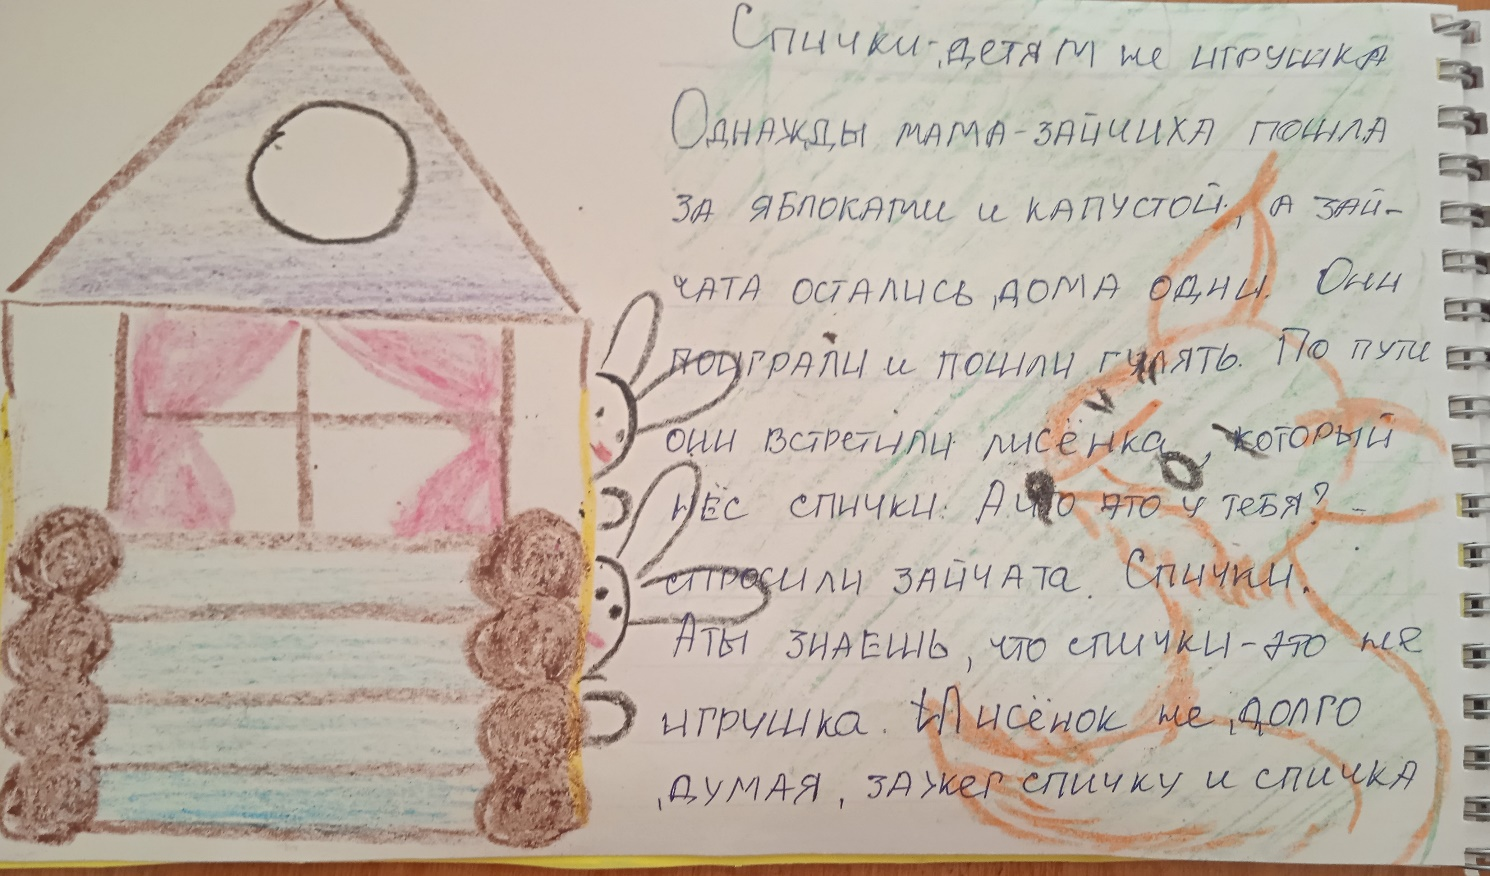 Спички-детям не игрушка
Однажды мама-зайчиха пошла
за яблоками и капустой, а зай-
чата остались дома одни. Они
поиграли и пошли гулять. По пути
они встретили лисёнка, который
нёс спички. А что это у тебя? -
спросили зайчата. Спички.
А ты знаешь, что спички-это не
игрушка. Лисёнок не долго
думая, зажег спичку и спичка